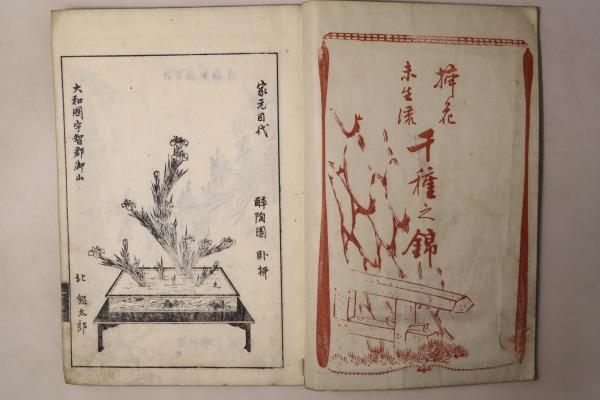 挿花
未生流
千種之錦
家元目代
酔陶園 卧挿
大和國宇智郡御山
北 惣太郎